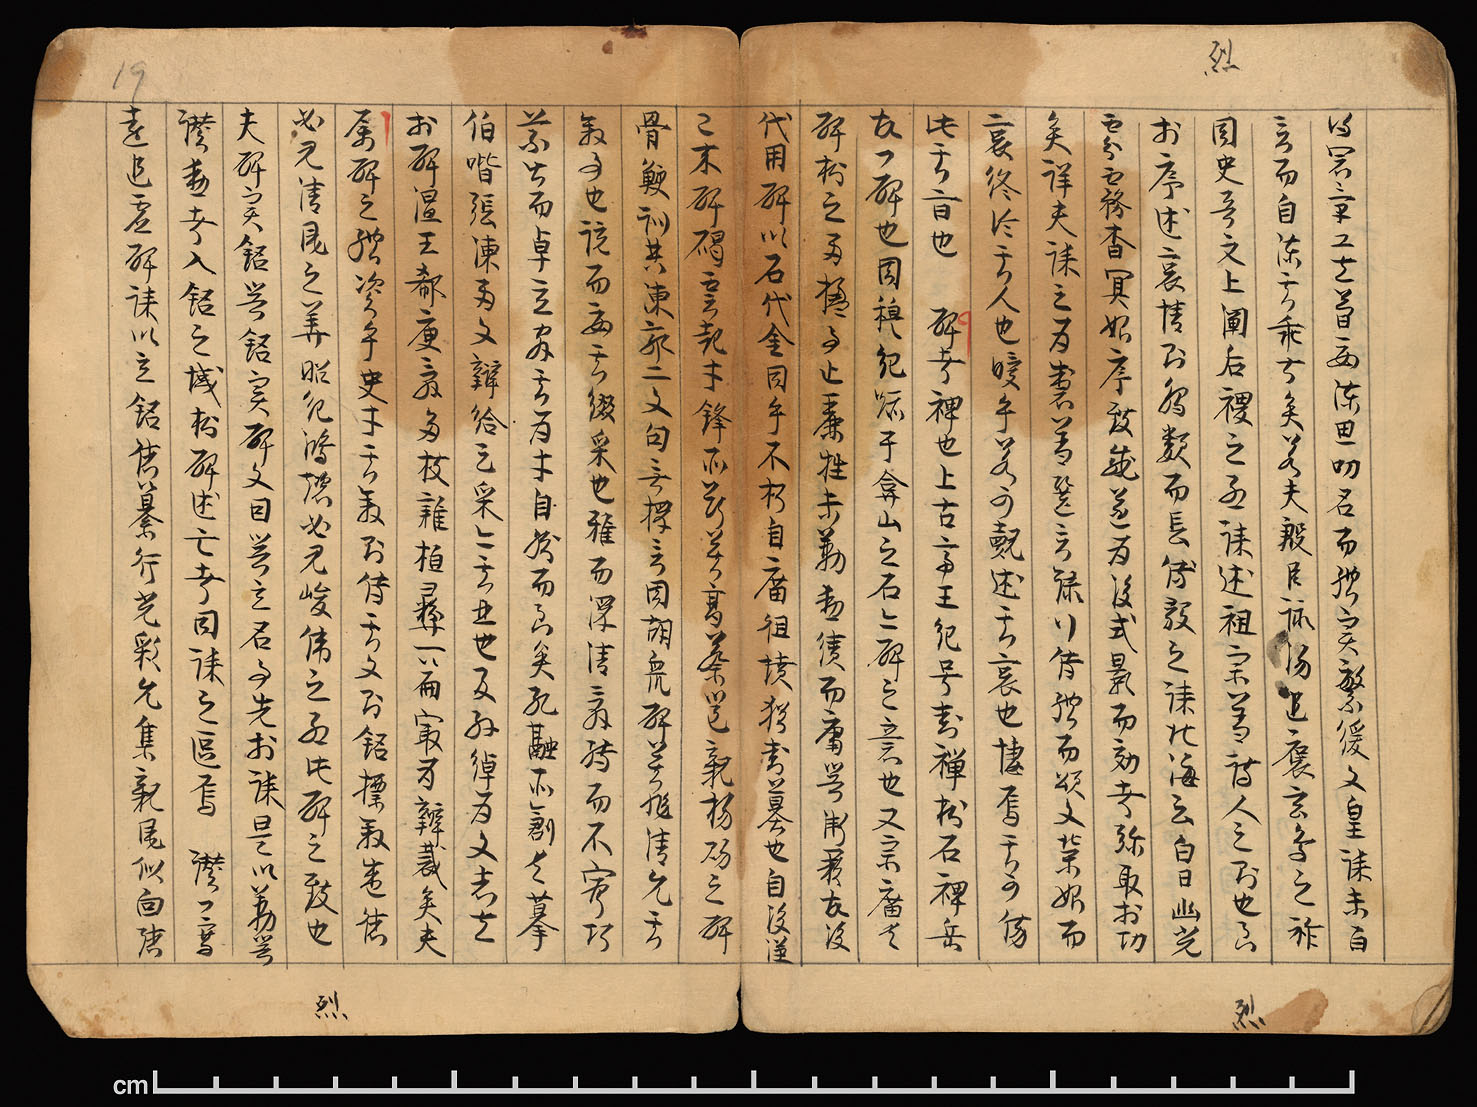 烈
得宪章工在简要陳思叨名而體實繁緩文皇誄末百
言而自陳其乖甚矣若夫殷臣詠湯追褒玄鳥之祚
周史哥文上闡后稷之烈誄述祖宗蓋詩人之則也至
於序述哀情則觸類而長傅毅之誄北海云白日幽光
雰霧杳冥始序致感遂為後式景而効者弥取於功
矣詳夫誄之為製蓋選言錄行傳體而頌文榮始而
哀終論其人也曖乎若可覿述其哀也悽焉其可傷
此其旨也 碑者裨也上古帝王紀号封禪樹石裨岳
故曰碑也周穆紀跡于弇山之石亦碑之意也又宗廟有
碑樹之兩楹事止麗牲未勒勳績而庸器漸缺故後
代用碑以石代金同乎不朽自廟徂墳猶封墓也自後漢
已來碑碣雲起才鋒所斷莫高蔡邕觀楊賜之碑
骨鯁訓典陳郭二文句無擇言周胡衆碑莫非清允其
敘事也該而要其綴采也雅而澤清詞轉而不窮巧
義出而卓立察其為才自然而至矣孔融所創有摹
伯喈張陳兩文辯給足采亦其亞也及孫綽為文志在
於碑溫王郗庾詞多枝雜桓彝一篇最為辯裁矣夫
屬碑之體資乎史才其敘則傳其文則銘標敘盛德
必見清風之華昭紀鴻懿必見峻偉之烈此碑之致也
夫碑實銘器銘實碑文因器立名事先於誄是以勒器
讚勳者入銘之域樹碑述亡者同誄之區焉 讚曰寫
遠追虛碑誄以立銘德纂行光彩允集觀風似面聽
烈
烈
19
cm